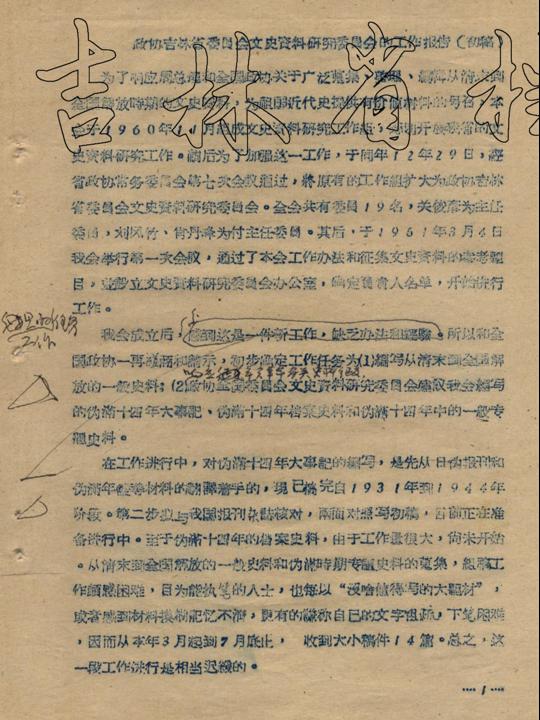 政协吉林省委员会文史资料研究委员会的工作报告（初稿）
为了响应周总理和全国政协关于广泛蒐集、整理、编写从清末到
全国解放时期的文史资料，为祖国近代史提供有价值材料的号召，本
会于1960年11月组成文史资料研究工作组，开展我省的文
史资料研究工作。嗣后为了加强这一工作，于同年12年29日，经
省政协常务委员会第七次会议通过，将原有的工作组扩大为政协吉林
省委员会文史资料研究委员会。全会共有委员19名，关俊彦为主任
委员，刘风竹、肖丹峰为付主任委员。其后，于1961年3月4日
我会举行第一次会议，通过了本会工作办法和征集文史资料的参考题
目，並設立文史资料研究委员会办公室，确定負責人名单，开始进行
工作。
我会成立后，感到这是一件新工作，缺乏办法和经验。所以和全
国政协一再联系和请示，初步确定工作任务为(1)编写从清末到全国解
放的一般史料；(2)政协全国委员会文史资料研究委员会建议我会编写
的伪满十四年大事記、伪满十四年档案史料和伪满十四年中的一般专
题史料。
在工作进行中，对伪满十四年大事記的编写，是先从日伪报刊和
伪满年鉴等材料的翻譯着手的，現已稿完自1931年到1944年
阶段。第二步拟与我国报刊杂誌核对，两面对照写初稿，目前正在准
备进行中。至于伪满十四年的档案史料，由于工作量很大，尚未开始
。从清末到全国解放的一般史料和伪满时期专题史料的蒐集，組稿工
作頗感困难，因为能执笔的人士，也每以“没啥值得写的大题材”，
或者感到材料模糊記忆不清，更有的謙称自己的文字粗疏，下笔困难
，因而从本年3月起到7月底止，收到大小稿件14篇。总之，这
一段工作进行是相当迟缓的。
····1····
吉林省